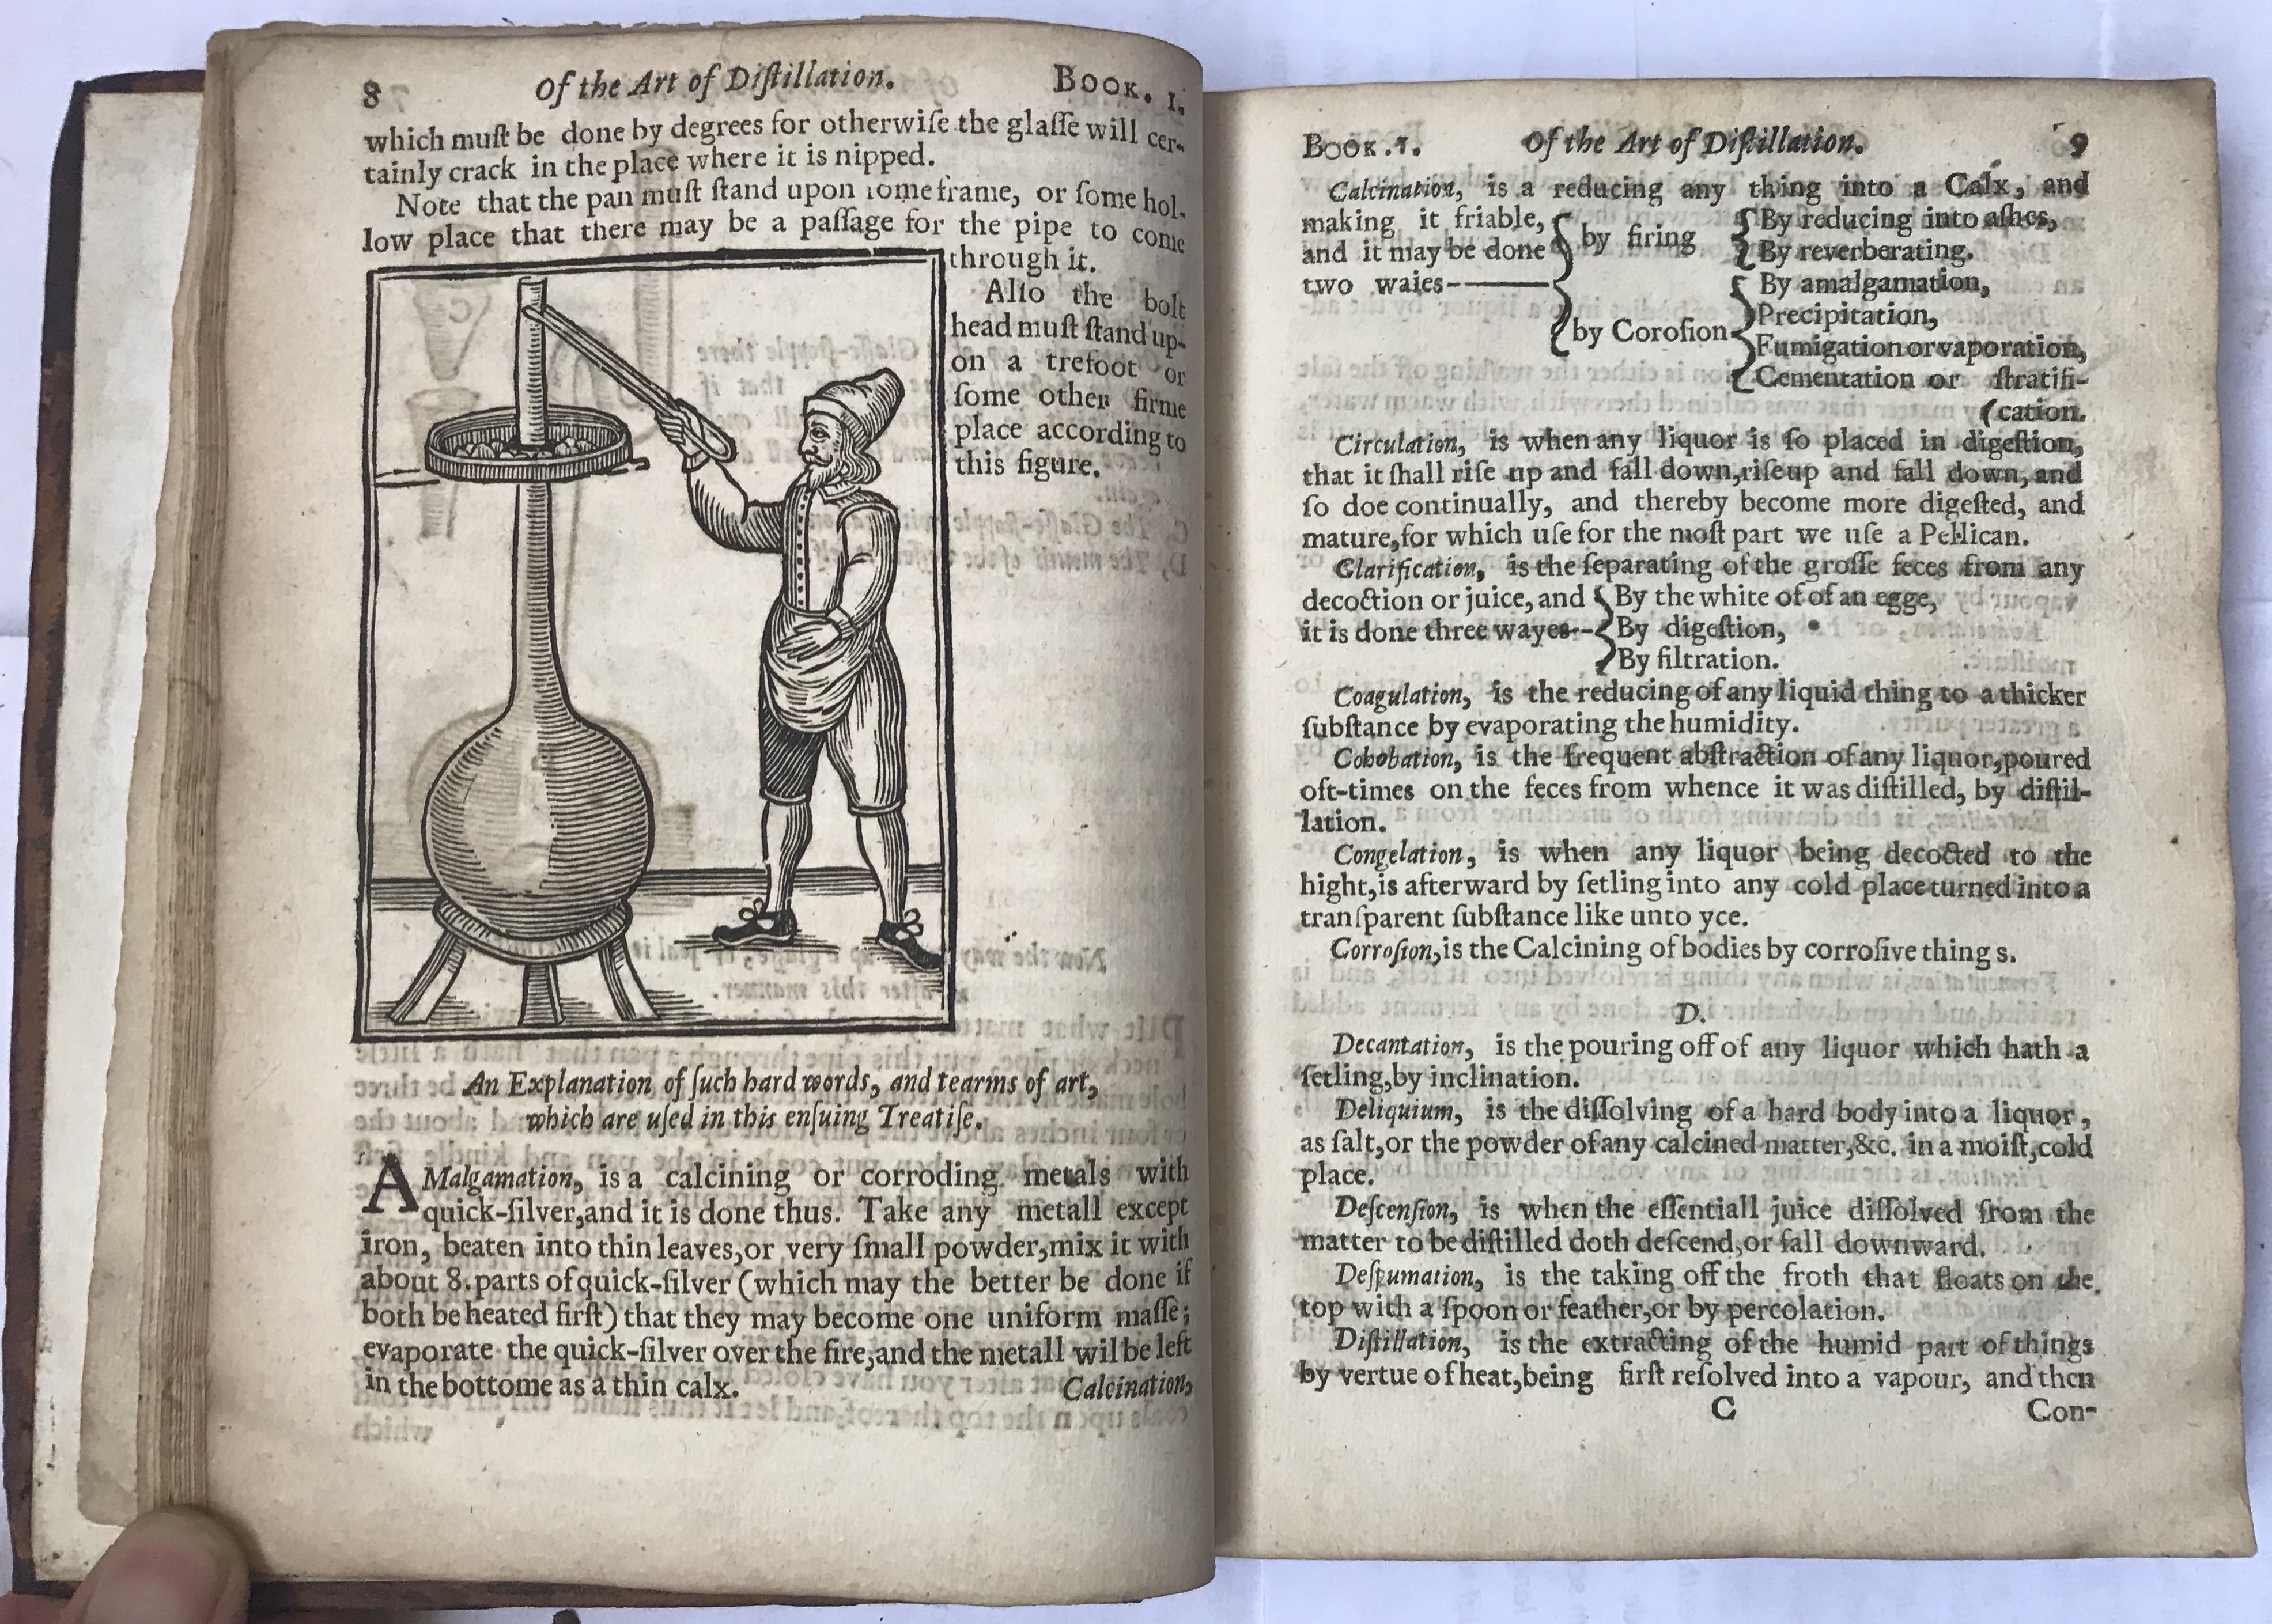 8 Of the Art of Diſtillation. Book. 1.
which muſt be done by degrees for otherwiſe the glaſſe will cer-
tainly crack in the place where it is nipped.
Note that the pan muſt ſtand upon ſome frame, or ſome hol-
low place that there may be a paſſage for the pipe to come
through it.
Alſo the bolt
head muſt ſtand up-
on a trefoot or
ſome other firme
place according to
this figure.
An Explanation of ſuch hard words, and tearms of art,
which are uſed in this enſuing Treatiſe.
AMalgamation, is a calcining or corroding metals with
quick-ſilver, and it is done thus. Take any metall except
iron, beaten into thin leaves, or very ſmall powder, mix it with
about 8. parts of quick-ſilver (which may the better be done if
both be heated firſt) that they may become one uniform maſſe;
evaporate the quick-ſilver over the fire, and the metall wil be left
in the bottome as a thin calx. Calcination,
Book. 1. Of the Art of Diſtillation. 9
Calcination, is a reducing any thing into a Calx, and
making it friable,
and it may be done
two waies
by firing
By reducing into aſhes,
By reverberating.
by Coroſion
By amalgamation,
Precipitation,
Fumigation or vaporation,
Cementation or ſtratifi-
(cation.
Circulation, is when any liquor is ſo placed in digeſtion,
that it ſhall riſe up and fall down, riſe up and fall down, and
ſo doe continually, and thereby become more digeſted, and
mature, for which uſe for the moſt part we uſe a Pellican.
Clarification, is the ſeparating of the groſſe feces from any
decoction or juice, and
it is done three wayes--
By the white of of an egge,
By digeſtion,
By filtration.
Coagulation, is the reducing of any liquid thing to a thicker
ſubſtance by evaporating the humidity.
Cohobation, is the frequent abſtraction of any liquor, poured
oft-times on the feces from whence it was diſtilled, by diſtil-
lation.
Congelation, is when any liquor being decocted to the
hight, is afterward by ſetling into any cold place turned into a
tranſparent ſubſtance like unto yce.
Corroſion, is the Calcining of bodies by corroſive things.
D.
Decantation, is the pouring off of any liquor which hath a
ſetling, by inclination.
Deliquium, is the diſſolving of a hard body into a liquor,
as ſalt, or the powder of any calcined matter, &c. in a moiſt, cold
place.
Deſcenſion, is when the eſſentiall juice diſſolved from the
matter to be diſtilled doth deſcend, or fall downward.
Deſpumation, is the taking off the froth that floats on the
top with a ſpoon or feather, or by percolation.
Diſtillation, is the extracting of the humid part of things
by vertue of heat, being firſt reſolved into a vapour, and then
C Con-